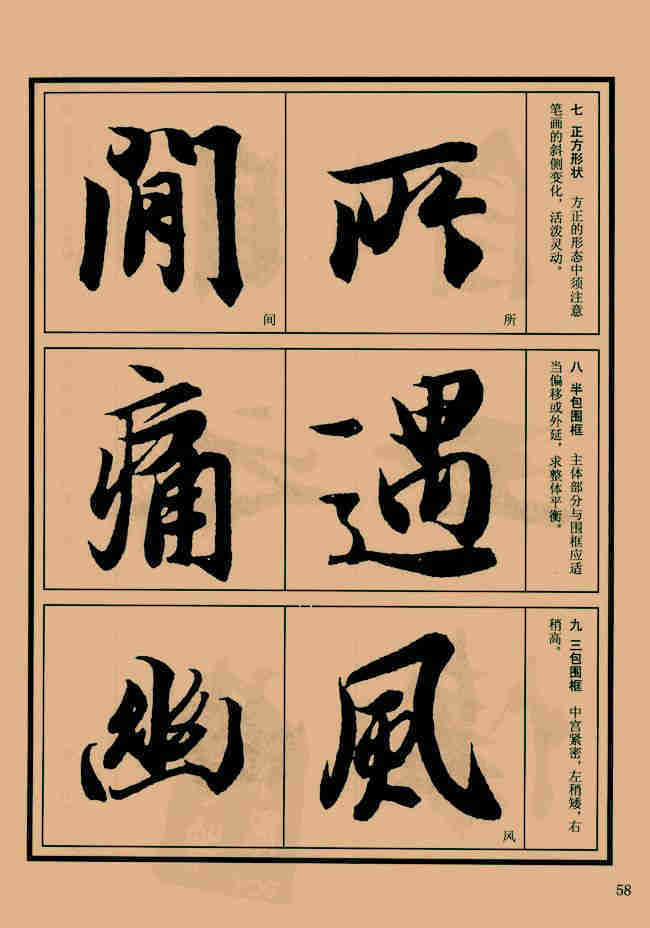 七 正方形状 方正的形态中须注意
笔画的斜侧变化，活泼灵动。
所
所
閒
间
八 半包围框 主体部分与围框应适
当偏移或外延，求整体平衡。
遇
痛
九 三包围框 中宫紧密，左稍矮，右
稍高。
風
风
幽
58